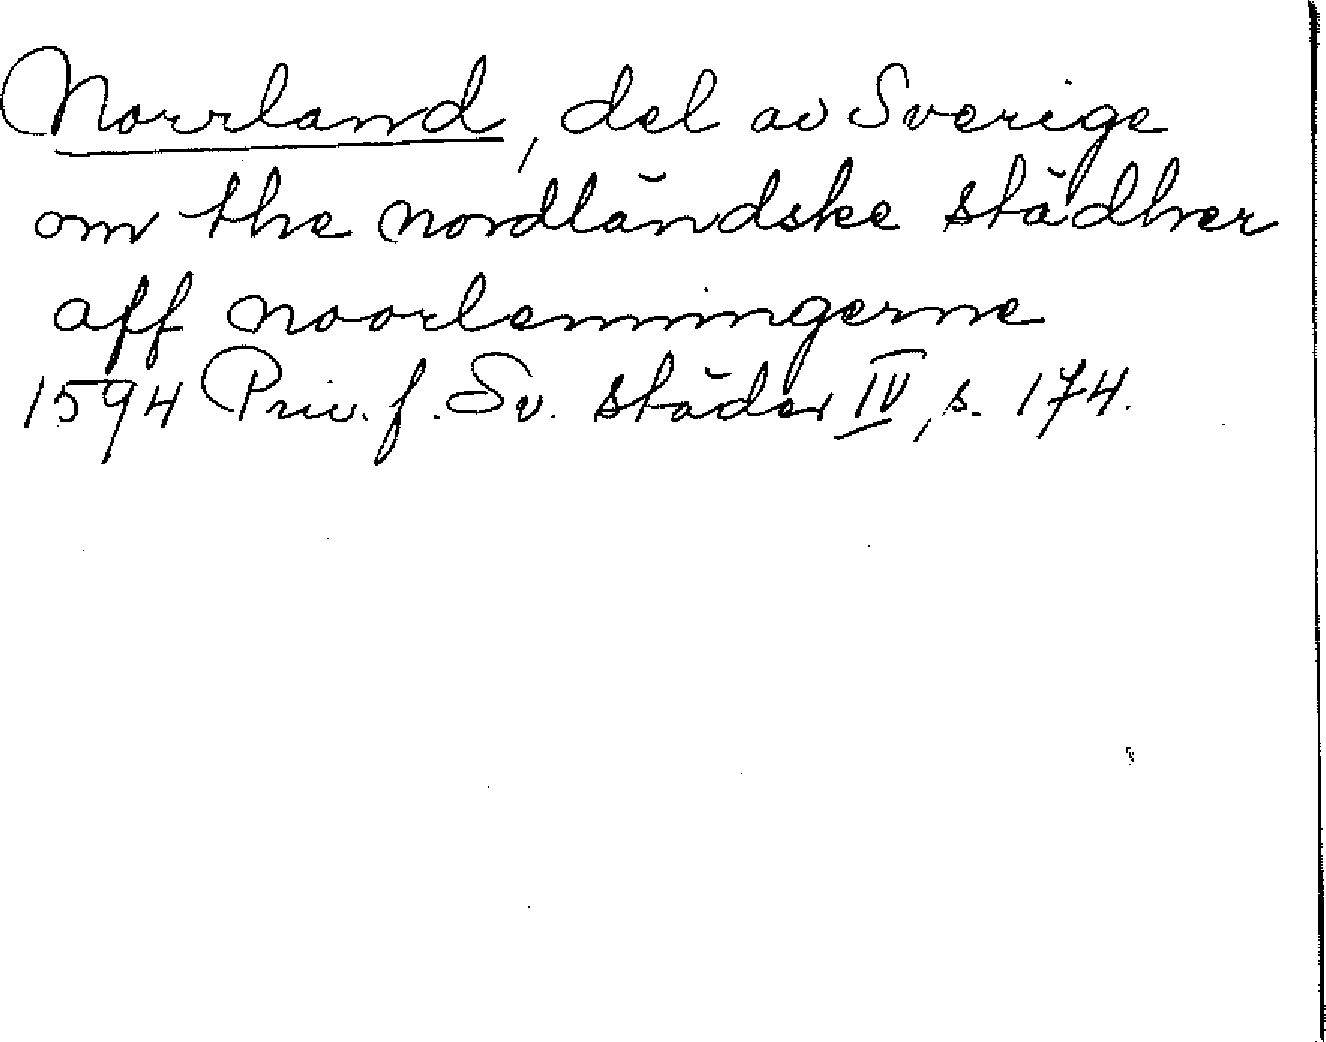 Norrland, del av Sverige
om the nordländske städher
aff noorlenningerne
1594 Priv. f. Sv. städer IV, s. 174.